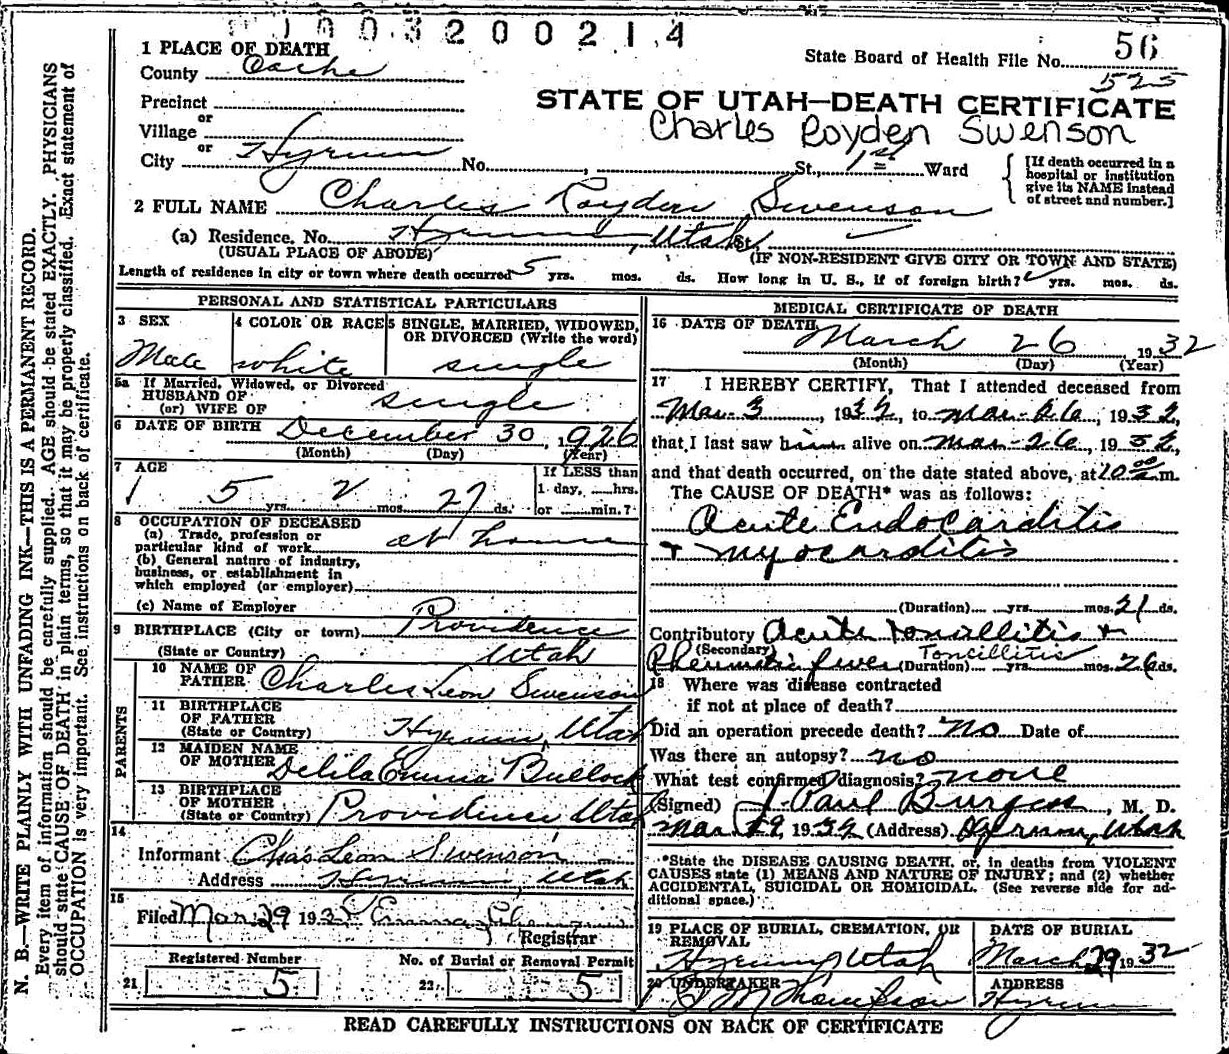 1003200214
1 PLACE OF DEATH
State Board of Health File No. 56
525
County Cache
Precinct
or
Village
or
City Hyrum No. , St., 1st Ward
STATE OF UTAH—DEATH CERTIFICATE
Charles Royden Swenson
[If death occurred in a
hospital or institution
give its NAME instead
of street and number.]
2 FULL NAME Charles Royden Swenson
(a) Residence. No. Hyrum, Utah St.
(USUAL PLACE OF ABODE) (IF NON-RESIDENT GIVE CITY OR TOWN AND STATE)
Length of residence in city or town where death occurred 5 yrs. mos. ds. How long in U. S., if of foreign birth? yrs. mos. ds.
PERSONAL AND STATISTICAL PARTICULARS
3 SEX
Male
4 COLOR OR RACE
white
5 SINGLE, MARRIED, WIDOWED,
OR DIVORCED (Write the word)
single
5a If Married, Widowed, or Divorced
HUSBAND OF
(or) WIFE OF single
6 DATE OF BIRTH December 30, 1926
(Month) (Day) (Year)
7 AGE
5 yrs. 2 mos. 27 ds.
If LESS than
1 day, hrs.
or min.?
8 OCCUPATION OF DECEASED
(a) Trade, profession or
particular kind of work at home
(b) General nature of industry,
business, or establishment in
which employed (or employer)
(c) Name of Employer
9 BIRTHPLACE (City or town) Providence
(State or Country) Utah
PARENTS
10 NAME OF
FATHER Charles Leon Swenson
11 BIRTHPLACE
OF FATHER
(State or Country) Hyrum, Utah
12 MAIDEN NAME
OF MOTHER Delila Emma Bullock
13 BIRTHPLACE
OF MOTHER
(State or Country) Providence Utah
14
Informant Chas Leon Swenson
Address Hyrum, Utah
15
Filed Mar 29 193 Emma
Registrar
Registered Number
21 5
No. of Burial or Removal Permit
22 5
MEDICAL CERTIFICATE OF DEATH
16 DATE OF DEATH
March 26 1932
(Month) (Day) (Year)
17 I HEREBY CERTIFY, That I attended deceased from
Mar 3, 1932, to Mar 26, 1932,
that I last saw him alive on Mar-26, 1932,
and that death occurred, on the date stated above, at 10 00 m.
The CAUSE OF DEATH* was as follows:
Acute Endocarditis
+ myocarditis
(Duration) yrs. mos. 21 ds.
Contributory Acute Toncillitis +
(Secondary) Toncillitis
Rheumatic fever (Duration) yrs. mos. 26 ds.
18 Where was disease contracted
if not at place of death?
Did an operation precede death? no Date of
Was there an autopsy? no
What test confirmed diagnosis? none
(Signed) J. Paul Burgess, M. D.
Mar 29 1932 (Address) Hyrum, Utah
*State the DISEASE CAUSING DEATH, or, in deaths from VIOLENT
CAUSES state (1) MEANS AND NATURE OF INJURY; and (2) whether
ACCIDENTAL, SUICIDAL OR HOMICIDAL. (See reverse side for ad-
ditional space.)
19 PLACE OF BURIAL, CREMATION, OR
REMOVAL
Hyrum, Utah
DATE OF BURIAL
March 29 1932
20 UNDERTAKER
M Thompson
ADDRESS
Hyrum
READ CAREFULLY INSTRUCTIONS ON BACK OF CERTIFICATE
N. B.—WRITE PLAINLY WITH UNFADING INK—THIS IS A PERMANENT RECORD.
Every item of information should be carefully supplied. AGE should be stated EXACTLY. PHYSICIANS
should state CAUSE OF DEATH in plain terms, so that it may be properly classified. Exact statement of
OCCUPATION is very important. See instructions on back of certificate.